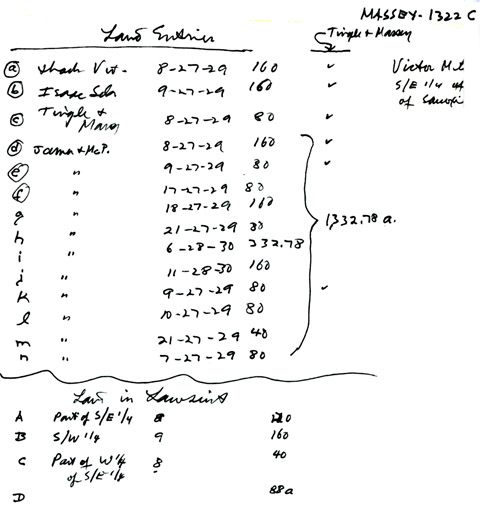 MASSEY-1322 C
Land Entries Tingle & Massey
a Shach Vet- 8-27-29 160 ✓ Victor Mt
b Isaac Sch 9-27-29 160 ✓ S/E 1/4
c Tingle & Massy 8-27-29 80 ✓ of
d James & McP. 8-27-29 160 ✓
e " 9-27-29 80 ✓
f " 17-27-29 80
g " 18-27-29 160 1,332.78 a.
h " 21-27-29 80
i " 6-28-30 332.78
j " 11-28-30 160
k " 9-27-29 80 ✓
l " 10-27-29 80
m " 21-27-29 40
n " 7-27-29 80
Land in Lawsuit
A Part of S/E 1/4 8 120
B S/W 1/4 9 160
C Part of W 1/4 8 40
of S/E 1/4
D 88a